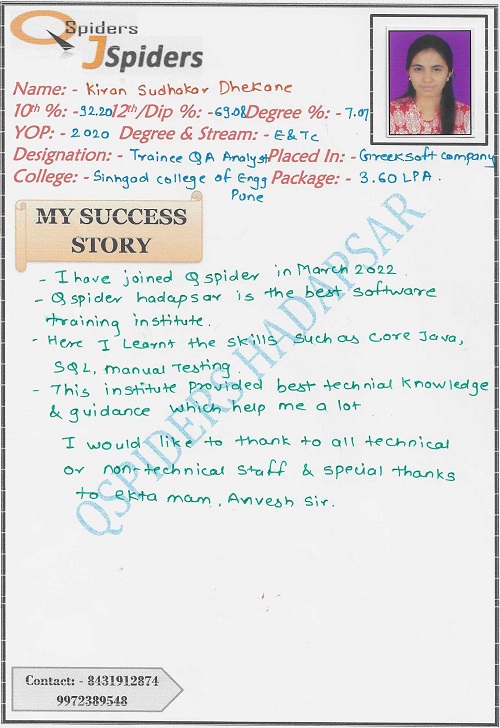 QSpiders
JSpiders
Name: - Kiran Sudhakar Dhekane
10th %: - 92.20 12th/Dip %: - 69.08 Degree %: - 7.07
YOP: - 2020 Degree & Stream: - E&Tc
Designation: - Trainee QA Analyst Placed In: - Greeksoft company
College: - Sinhgad college of Engg Package: - 3.60 LPA.
Pune
MY SUCCESS
STORY
- I have joined Qspider in March 2022
- Qspider hadapsar is the best software
training institute.
- Here I Learnt the skills such as core Java,
SQL, manual Testing.
- This institute provided best technial knowledge
& guidance which help me a lot
I would like to thank to all technical
or non-technical staff & special thanks
to ekta mam, Anvesh sir.
QSPIDERS HADAPSAR
Contact: - 8431912874
9972389548